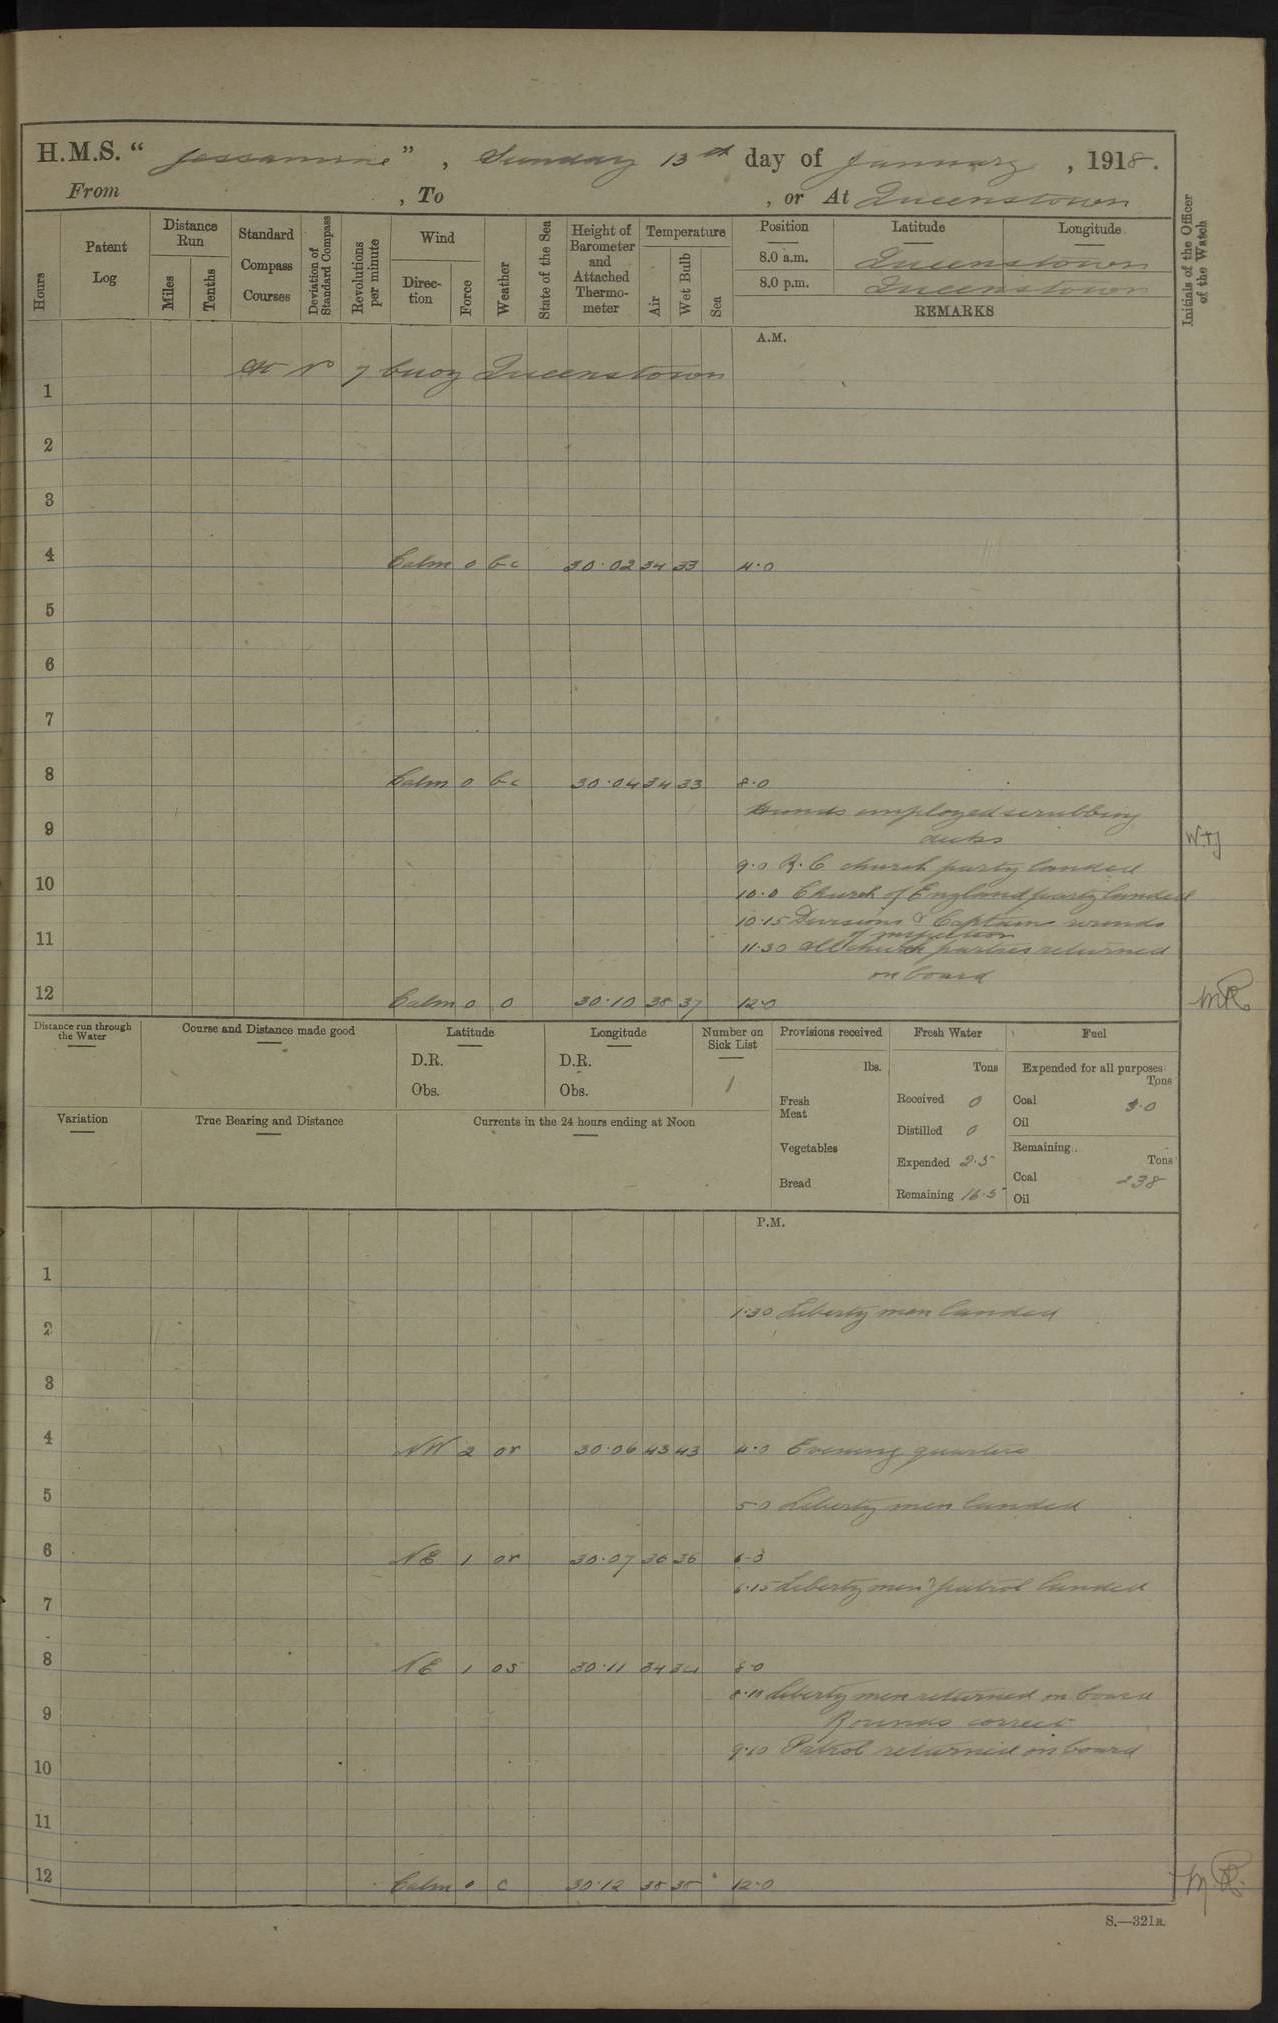 H.M.S. “ Jessamine ” , Sunday 13th day of January , 1918.
From , To , or At Queenstown
Hours
Patent Log
Distance Run
Miles
Tenths
Standard Compass Courses
Deviation of Standard Compass
Revolutions per minute
Wind
Direction
Force
Weather
State of the Sea
Height of Barometer and Attached Thermometer
Temperature
Air
Wet Bulb
Sea
Position
Latitude
Longitude
8.0 a.m. Queenstown
8.0 p.m. Queenstown
REMARKS
Initials of the Officer of the Watch
A.M.
At No 7 buoy Queenstown
1
2
3
4 Calm 0 bc 30.02 34 33 4.0
5
6
7
8 Calm 0 bc 30.04 34 33 8.0
Hands employed scrubbing
9 decks
9.0 R.C church party landed
10
10.0 Church of England party landed
10.15 Divisions & Captains rounds
of inspection
11
11.30 All church parties returned
on board
12 Calm 0 0 30.10 38 37 12.0
Distance run through the Water
Course and Distance made good
Latitude
D.R.
Obs.
Longitude
D.R.
Obs.
Number on Sick List
1
Provisions received
lbs.
Fresh Meat
Vegetables
Bread
Fresh Water
Tons
Received 0
Distilled 0
Expended 2.5
Remaining 16.5
Fuel
Expended for all purposes
Tons
Coal 3.0
Oil
Remaining
Tons
Coal 238
Oil
Variation
True Bearing and Distance
Currents in the 24 hours ending at Noon
P.M.
1
1.30 Liberty men landed
2
3
4 NW 2 or 30.06 43 43 4.0 Evening quarters
5
5.0 Liberty men landed
6 NE 1 or 30.07 36 36 6.0
6.15 Liberty men & patrol landed
7
8 NE 1 os 30.11 34 34 8.0
Liberty men returned on board
9 Rounds correct
9.10 Patrol returned on board
10
11
12 Calm 0 c 30.12 35 35 12.0
S.—321B.